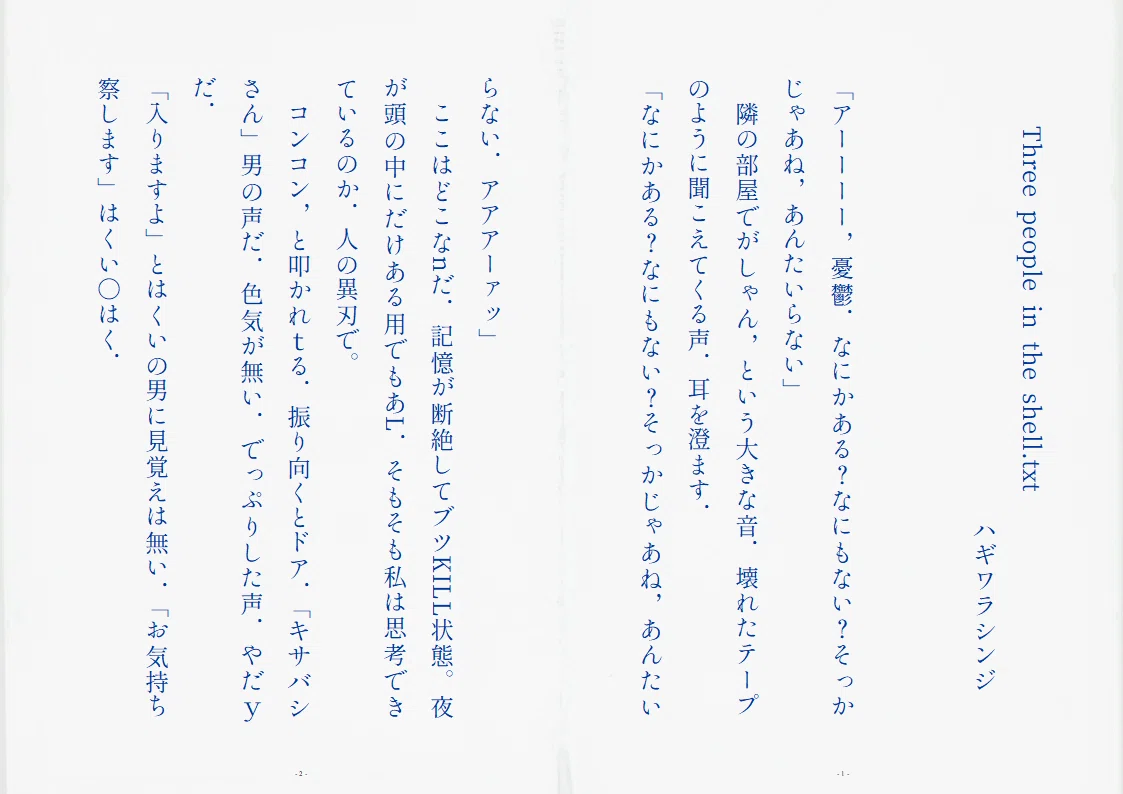 Three people in the shell.txt
ハギワラシンジ
「アーーーー，憂鬱．なにかある？なにもない？そっか
じゃあね，あんたいらない」
隣の部屋でがしゃん，という大きな音．壊れたテープ
のように聞こえてくる声．耳を澄ます．
「なにかある？なにもない？そっかじゃあね，あんたい
- 1 -
らない．アアアーァッ」
ここはどこなnだ．記憶が断絶してブツKILL状態。夜
が頭の中にだけある用でもあL．そもそも私は思考でき
ているのか．人の異刃で。
コンコン，と叩かれtる．振り向くとドア．「キサバシ
さん」男の声だ．色気が無い．でっぷりした声．やだy
だ．
「入りますよ」とはくいの男に見覚えは無い．「お気持ち
察します」はくい〇はく．
- 2 -